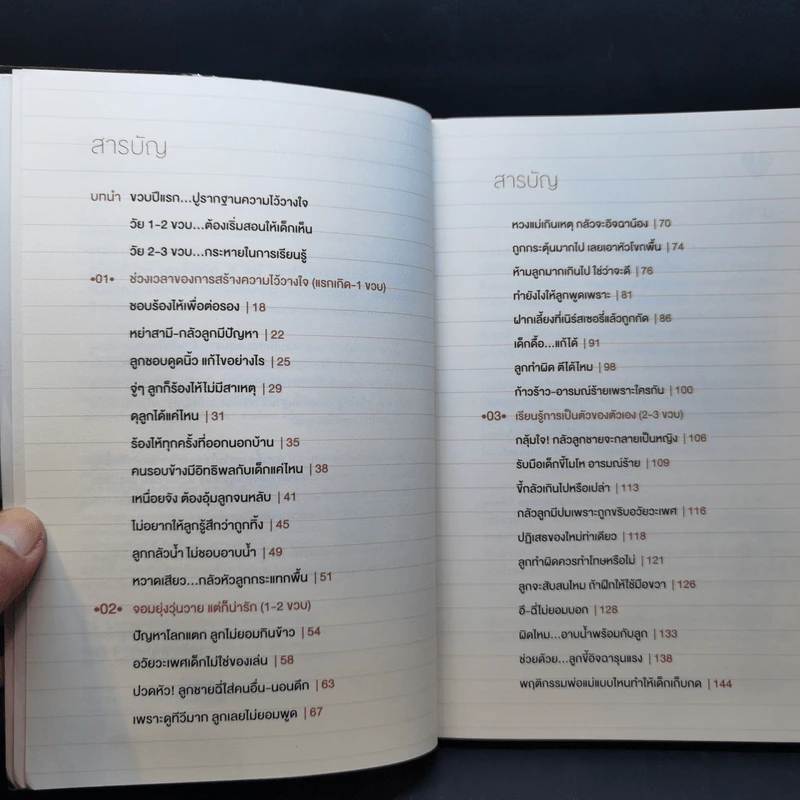 สารบัญ
บทนำ ขวบปีแรก...ปูรากฐานความไว้วางใจ
วัย 1-2 ขวบ...ต้องเริ่มสอนให้เด็กเห็น
วัย 2-3 ขวบ...กระหายในการเรียนรู้
•01• ช่วงเวลาของการสร้างความไว้วางใจ (แรกเกิด-1 ขวบ)
ชอบร้องไห้เพื่อต่อรอง | 18
หย่าสามี-กลัวลูกมีปัญหา | 22
ลูกชอบดูดนิ้ว แก้ไขอย่างไร | 25
จู่ๆ ลูกก็ร้องไห้ไม่มีสาเหตุ | 29
ดุลูกได้แค่ไหน | 31
ร้องไห้ทุกครั้งที่ออกนอกบ้าน | 35
คนรอบข้างมีอิทธิพลกับเด็กแค่ไหน | 38
เหนื่อยจัง ต้องอุ้มลูกจนหลับ | 41
ไม่อยากให้ลูกรู้สึกว่าถูกทิ้ง | 45
ลูกกลัวน้ำ ไม่ชอบอาบน้ำ | 49
หวาดเสียว...กลัวหัวลูกกระแทกพื้น | 51
•02• จอมยุ่งวุ่นวาย แต่ก็น่ารัก (1-2 ขวบ)
ปัญหาโลกแตก ลูกไม่ยอมกินข้าว | 54
อวัยวะเพศเด็กไม่ใช่ของเล่น | 58
ปวดหัว! ลูกชายฉี่ใส่คนอื่น-นอนดึก | 63
เพราะดูทีวีมาก ลูกเลยไม่ยอมพูด | 67
สารบัญ
หวงแม่เกินเหตุ กลัวจะอิจฉาน้อง | 70
ถูกกระตุ้นมากไป เลยเอาหัวโขกพื้น | 74
ห้ามลูกมากเกินไป ใช่ว่าจะดี | 76
ทำยังไงให้ลูกพูดเพราะ | 81
ฝากเลี้ยงที่เนิร์สเซอรี่แล้วถูกกัด | 86
เด็กดื้อ...แก้ได้ | 91
ลูกทำผิด ตีได้ไหม | 98
ก้าวร้าว-อารมณ์ร้ายเพราะใครกัน | 100
•03• เรียนรู้การเป็นตัวของตัวเอง (2-3 ขวบ)
กลุ้มใจ! กลัวลูกชายจะกลายเป็นหญิง | 106
รับมือเด็กขี้โมโห อารมณ์ร้าย | 109
ขี้กลัวเกินไปหรือเปล่า | 113
กลัวลูกมีปมเพราะถูกขริบอวัยวะเพศ | 116
ปฏิเสธของใหม่ท่าเดียว | 118
ลูกทำผิดควรทำโทษหรือไม่ | 121
ลูกจะสับสนไหม ถ้าฝึกให้ใช้มือขวา | 126
อึ-ฉี่ไม่ยอมบอก | 128
ผิดไหม...อาบน้ำพร้อมกับลูก | 133
ช่วยด้วย...ลูกขี้อิจฉารุนแรง | 138
พฤติกรรมพ่อแม่แบบไหนทำให้เด็กเก็บกด | 144